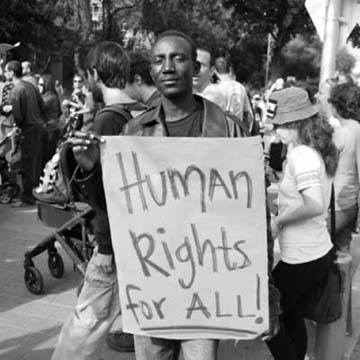 Human
Rights
for ALL!